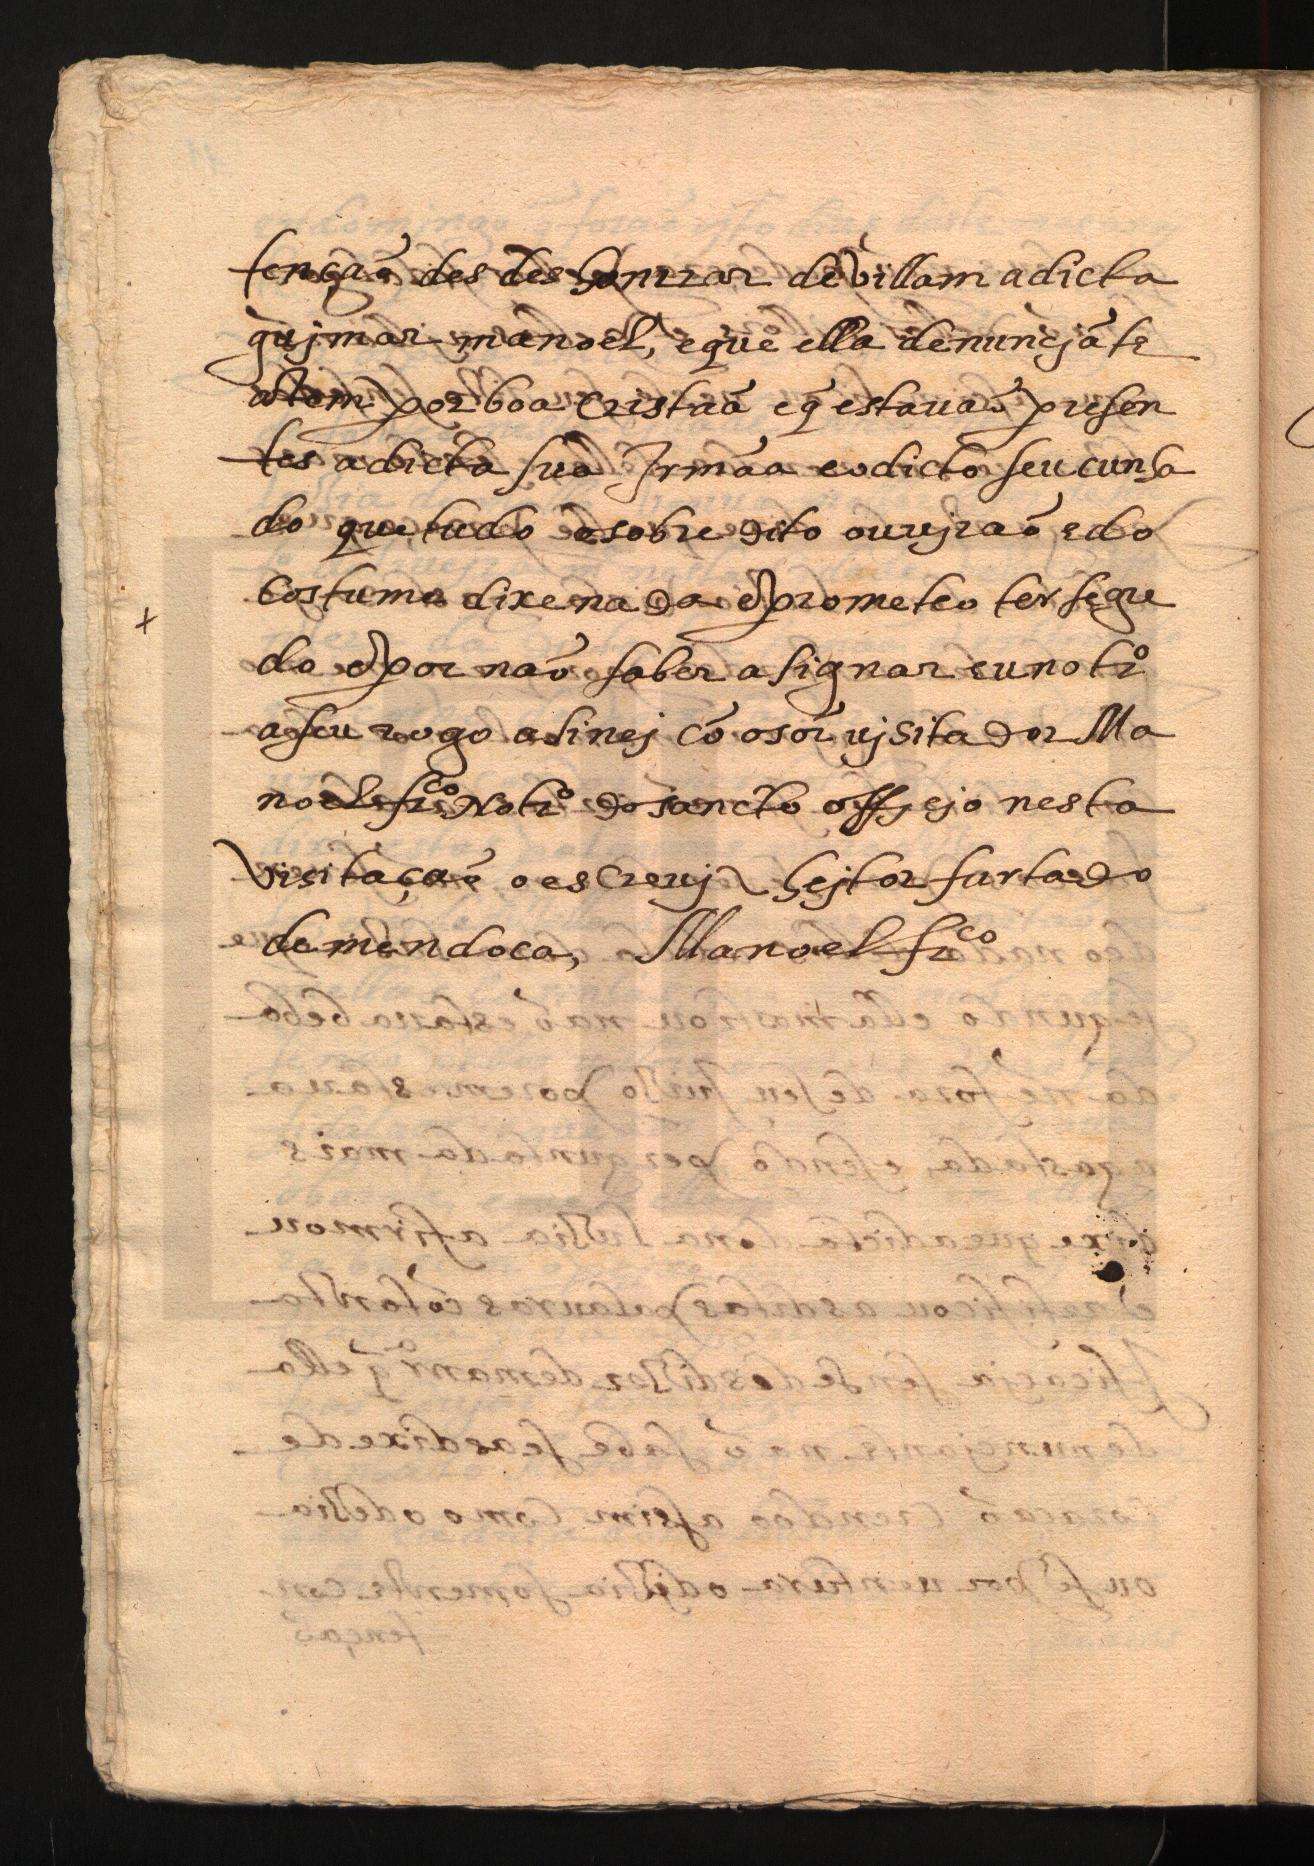 tençaõ des deshonrrar de villam a dicta
guimar manoel, e que ella denunçiãte
a tem por boa Cristuã e q̃ estavaõ presen
tes a dicta sua Jrmãa e o dicto seu cunha
do que tudo o sobre dito ouvjraõ e do
costume dixe nada e prometeo ter segre
do e por naõ saber asignar eu notro
a seu rogo asinej cõ o sõr vjsitador Ma
noel frco Notro do sancto offiçjo nesta
Visitaçaõ o escrevj hejtor furtado
de mendoça, Manoel frco